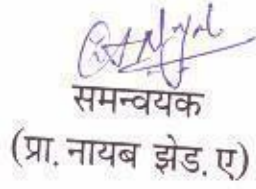 समन्वयक
(प्रा. नायब झेड. ए)